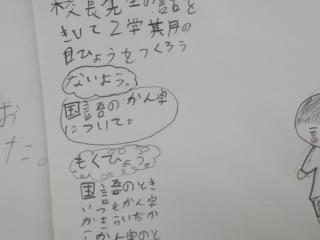 校長先生の話を
きいて2学期の
目ひょうをつくろう
ないよう。
国語のかん字
について。
もくひょう。
国語のとき
いつもかん字
かきらいだか
かん字のと
お
た。